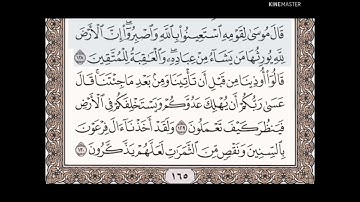 KINEMASTER
قَالَ مُوسَىٰ لِقَوْمِهِ ٱسْتَعِينُوا۟ بِٱللَّهِ وَٱصْبِرُوٓا۟ ۖ إِنَّ ٱلْأَرْضَ
لِلَّهِ يُورِثُهَا مَن يَشَآءُ مِنْ عِبَادِهِۦ ۖ وَٱلْعَٰقِبَةُ لِلْمُتَّقِينَ ١٢٨
قَالُوٓا۟ أُوذِينَا مِن قَبْلِ أَن تَأْتِيَنَا وَمِنۢ بَعْدِ مَا جِئْتَنَا ۚ قَالَ
عَسَىٰ رَبُّكُمْ أَن يُهْلِكَ عَدُوَّكُمْ وَيَسْتَخْلِفَكُمْ فِى ٱلْأَرْضِ
فَيَنظُرَ كَيْفَ تَعْمَلُونَ ١٢٩ وَلَقَدْ أَخَذْنَآ ءَالَ فِرْعَوْنَ
بِٱلسِّنِينَ وَنَقْصٍ مِّنَ ٱلثَّمَرَٰتِ لَعَلَّهُمْ يَذَّكَّرُونَ ١٣٠
١٦٥